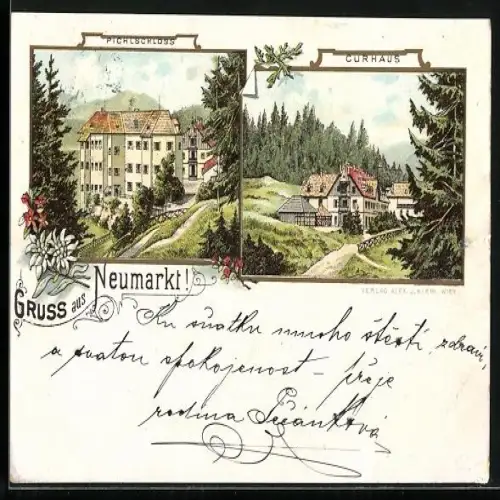 PICHLSCHLOSS
CURHAUS
GRUSS aus Neumarkt!
VERLAG ALEX. J. KLEIN, WIEN.
Ku svátku mnoho štěstí, zdraví,
a svatou spokojenost – přeje
rodina